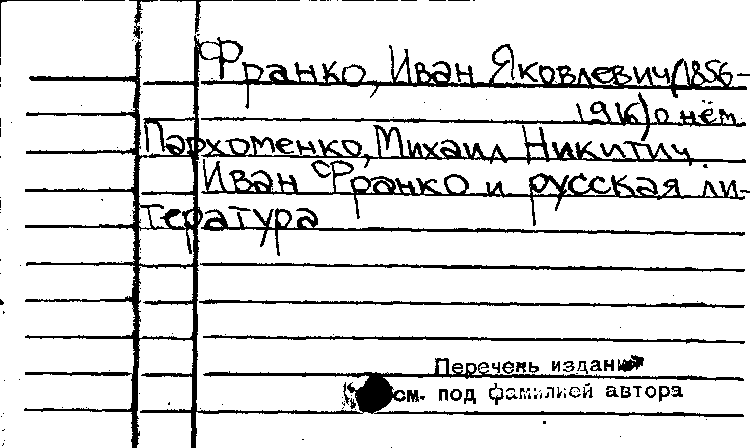 Франко, Иван Яковлевич (1856-
1916) о нём.
Пархоменко, Михаил Никитич.
Иван Франко и русская ли-
тература
Перечень изданий
см. под фамилией автора